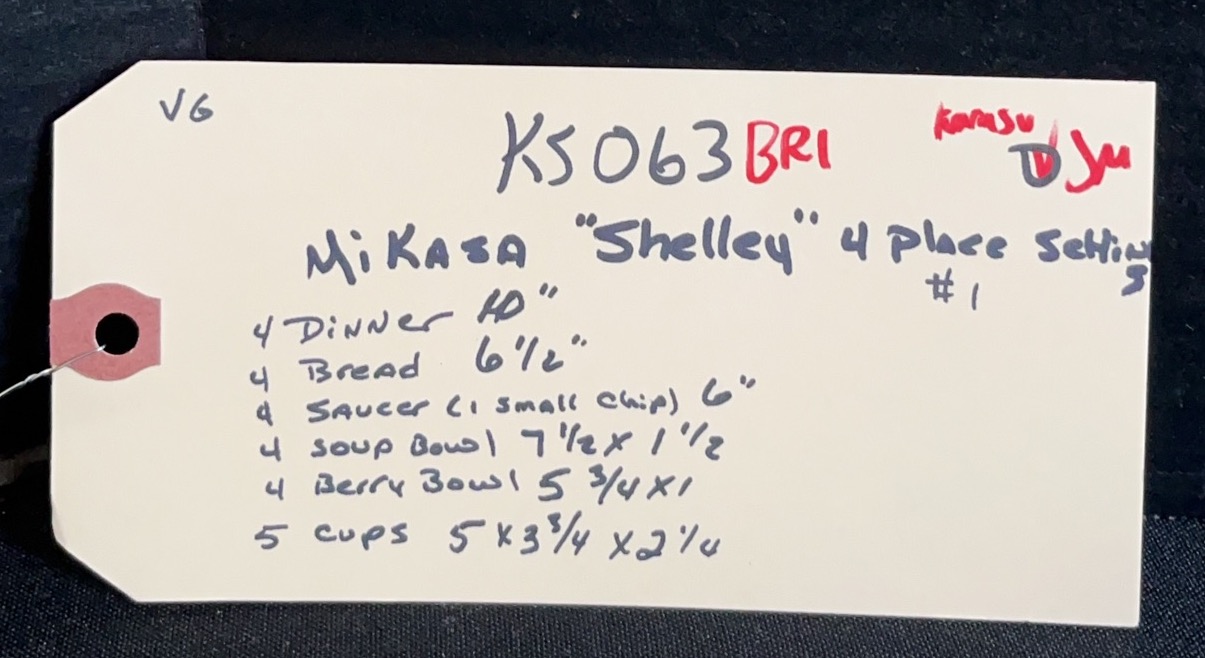 VG
KS063 BR1
Karasu
D Su
MiKASA "Shelley" 4 Place Setting
#1
4 Dinner 10"
4 Bread 6 1/2"
4 Saucer (1 small chip) 6"
4 Soup Bowl 7 1/2 x 1 1/2
4 Berry Bowl 5 3/4 x 1
5 cups 5 x 3 3/4 x 2 1/4